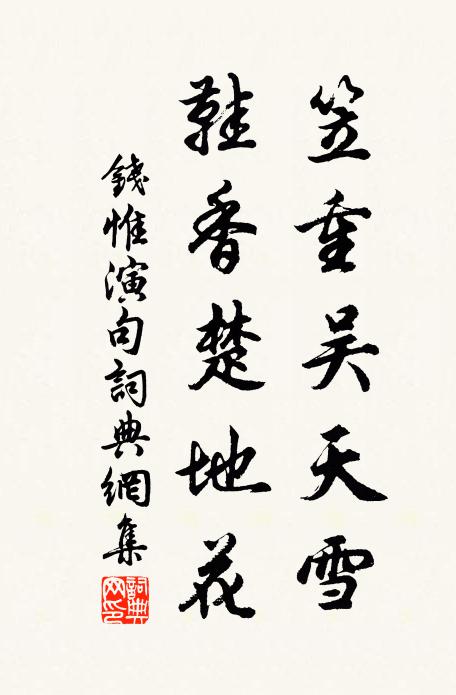 笠重吴天雪
鞋香楚地花
錢惟演句詞典網集
詞典網印